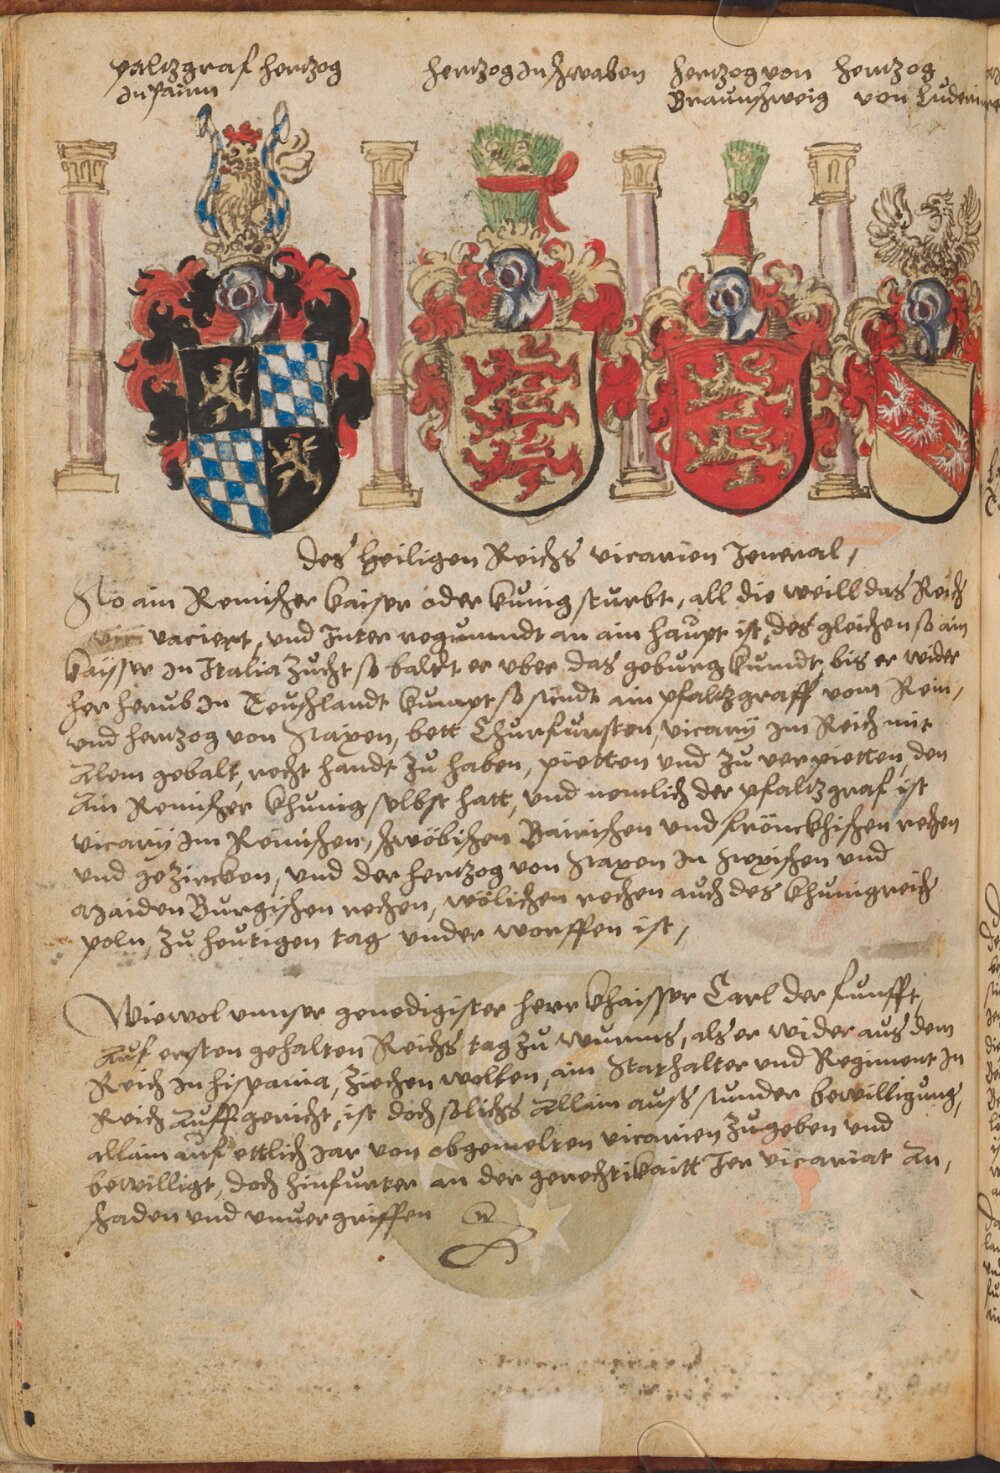 pfaltzgraf hertzog
In pairn
hertzog In schwaben
hertzog von
Braunschweig
hertzog
von Luderin
des heiligen Reichs vicarien Jeneral,
So ain Remischer kaiser oder kunig sturbt, all die weill das Reich
vaciert, und Inter regnumdt an ain haupt ist, des gleichen so ain
kaisser In Italia zucht so baldt er uber das geburg kumdt, bis er wider
her herub In Teuschlandt kumpt so sindt ain pfaltzgraff vom Rein,
und hertzog von Saxen, bett Churfursten, vicarÿ Im Reich mit
Alem gebalt, recht handt zu haben, pietten und zu verpietten, den
Ain Remischer khunig selbst hatt, und nemlich der pfaltzgraf ist
vicarÿ Im Reinischen, schwöbischen Bairischen und fränckhischen rechen
und gezircken, und der hertzog von Saxen In Sexischen und
MaidenBurgischen rechen, wölichen rechen auch des khunigreich
poln, zu heutigen tag under worffen ist,
Wiewol unnser genedigister herr khaisser Carl der funfft,
Auf ersten gehalten Reichs tag zu wurms, als er wider aus dem
Reich In hispania, ziechen wolten, ain Stathalter und Regiment In
Reich Auffgericht, ist doch solichs Allain auss sunder bewilligung,
allain auf ettlich Jar von obgemelten vicarien zugeben und
bewilligt, doch hinfurter an der gerechtikaitt Jer vicariat An,
schaden und unvergriffen